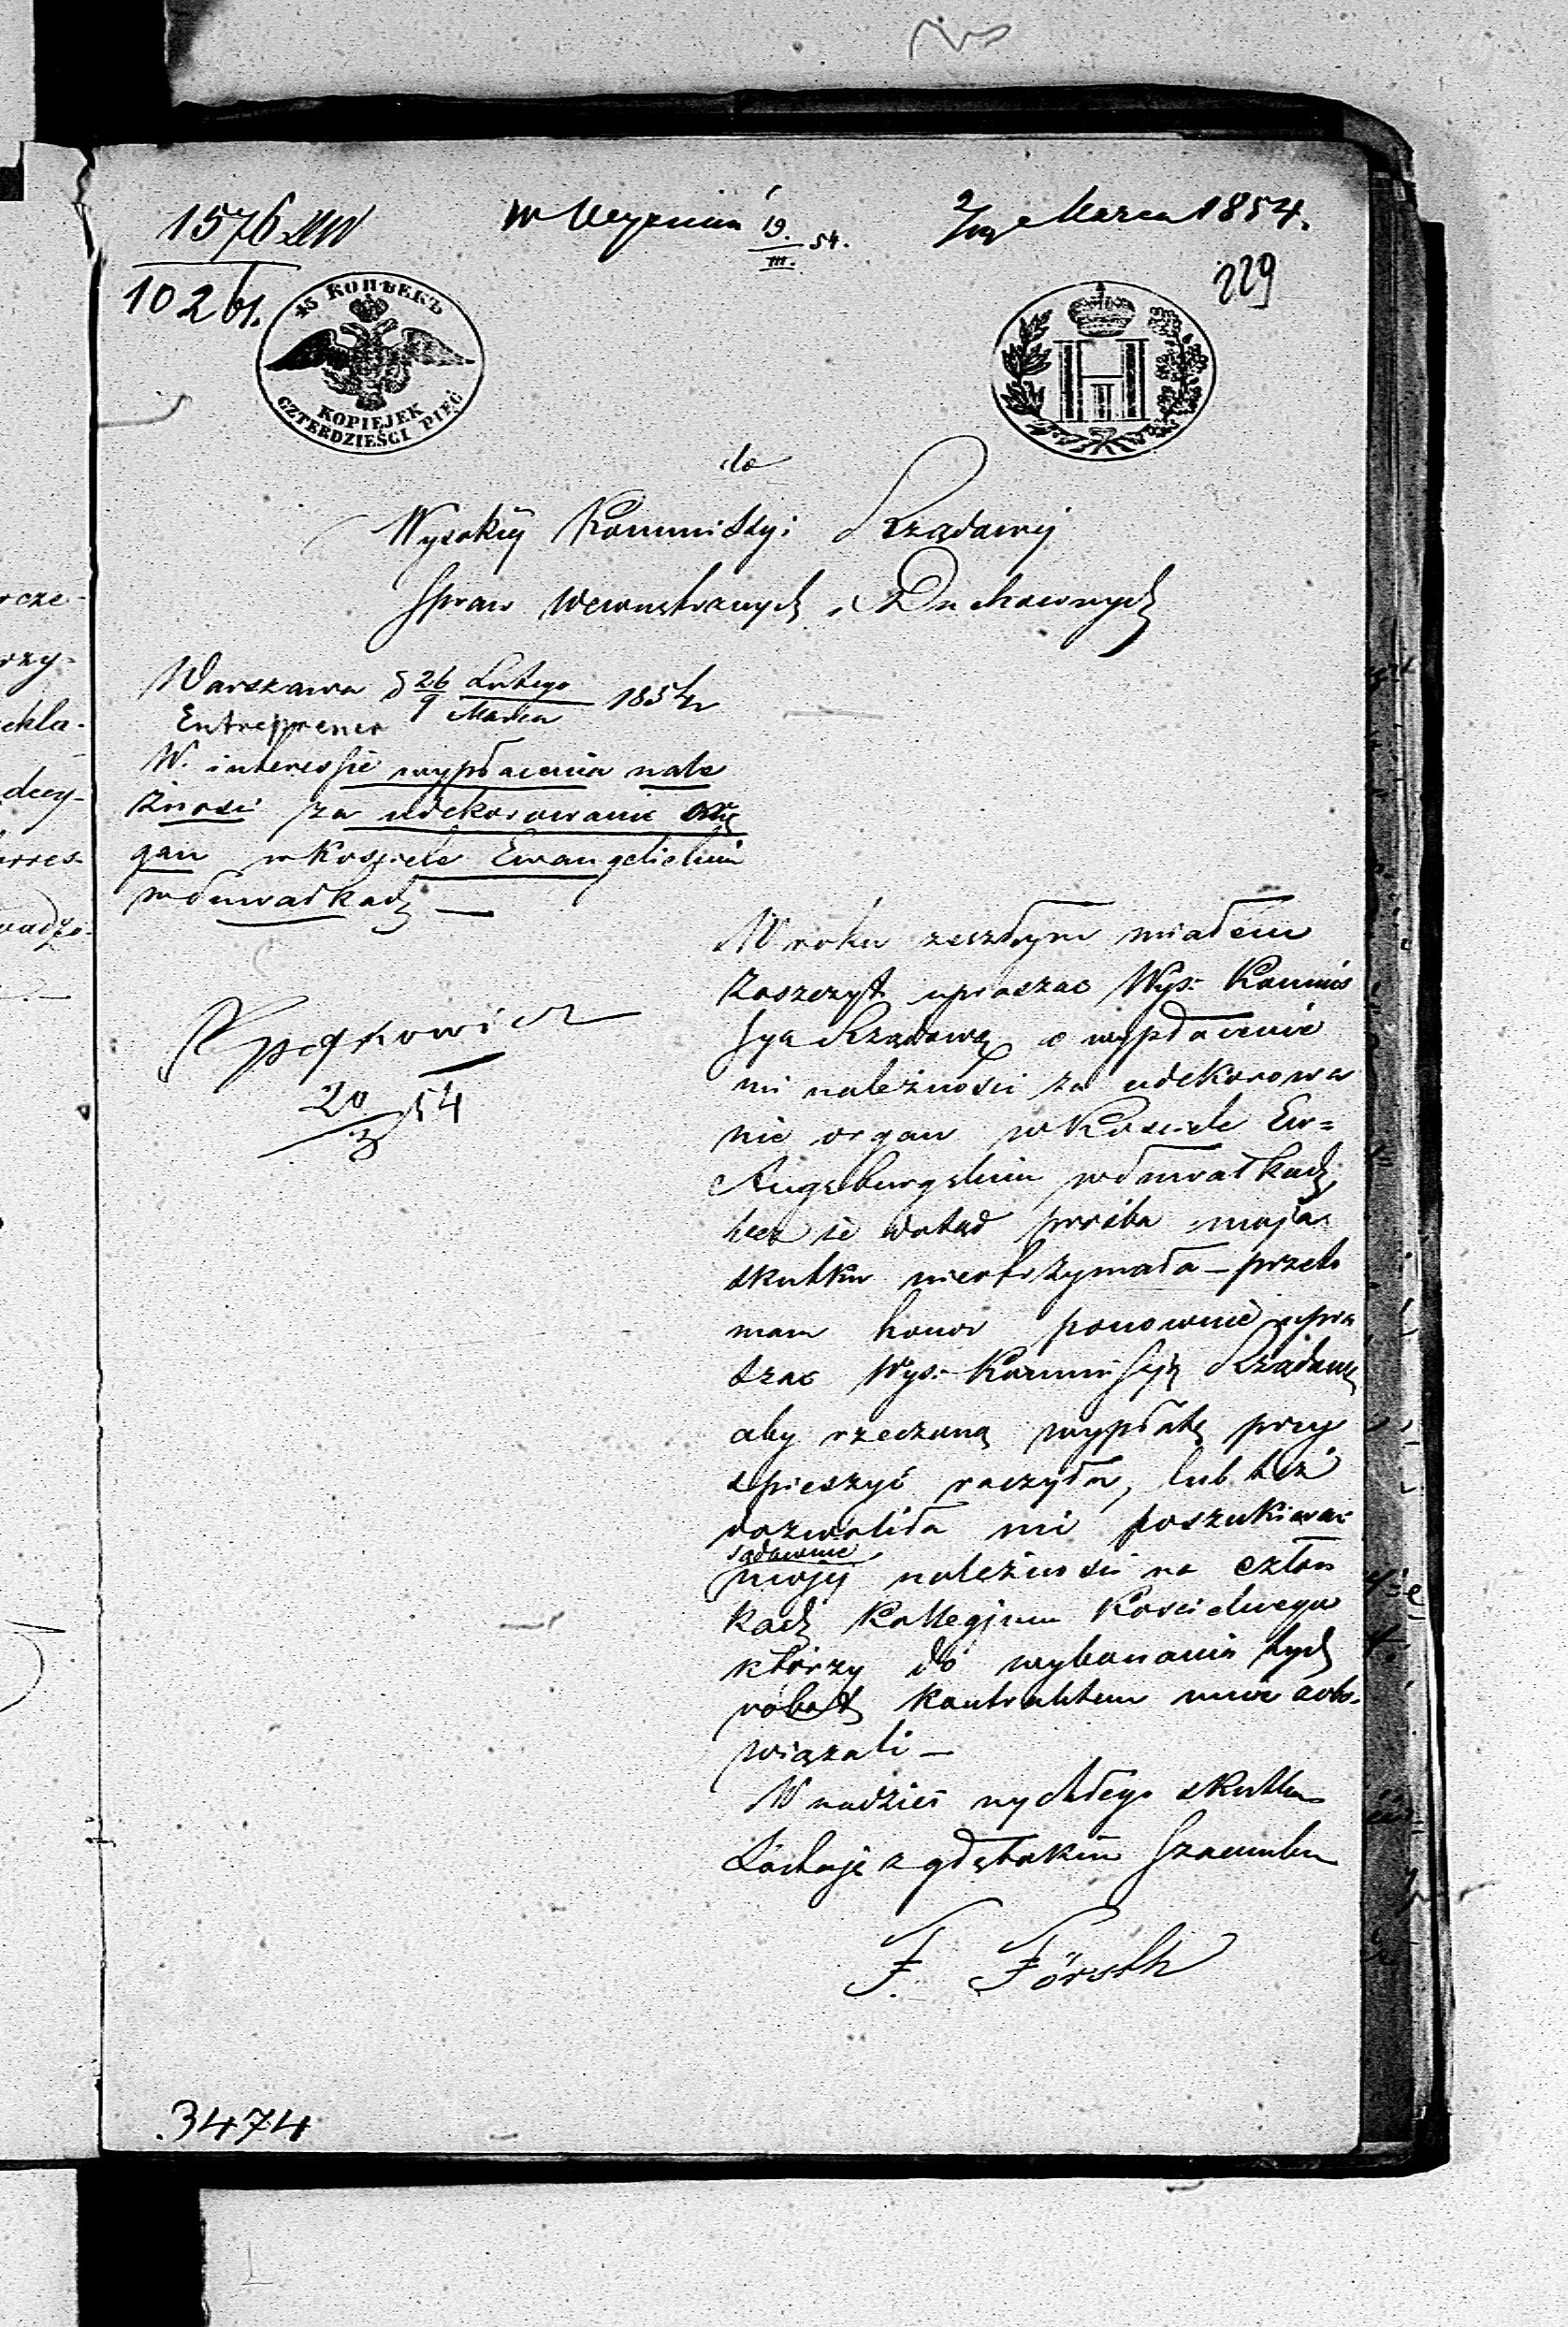 1576
1026
19.
III. 54.
Marca 1854.
229
45 КОПѢЕКЪ
KOPIEJEK
CZTERDZIEŚCI PIĘĆ
H
do
Wysokiéj Kommissyi Rządowéj
Spraw Wewnętrznych i Duchownych
Warszawa d 26/9 Lutego/Marca 1854 r
Entreprener
W. interessie wypłacenia nale
żności za udekorowanie
gan w Kosciele Ewangelickim
w Suwałkach —
20/3 54
W roku zeszłym miałem
Zaszczyt upraszac Wys: Kommis
syą Rządową o wypłacenie
mi należności za udekorowa
nie organ w Kosciele Ew=
Augsburgskim w Suwałkach
lecz że dotąd prośba moja
skutku nieotrzymała — przeto
mam honor ponownie upra
szac Wys: Kommissyą Rządową
aby rzeczoną wypłatę przy
spieszyć raczyła, lub też
dozwoliła mi poszukiwac
sądownie
mojéj należności na człon
kach Kollegjum Koscielnego
którzy do wykonania tych
robót kontraktem mnie zobo-
wiązali —
W nadziei rychłego skutku
Zostaję z głębokim szacunkiem
F. Försth
3474